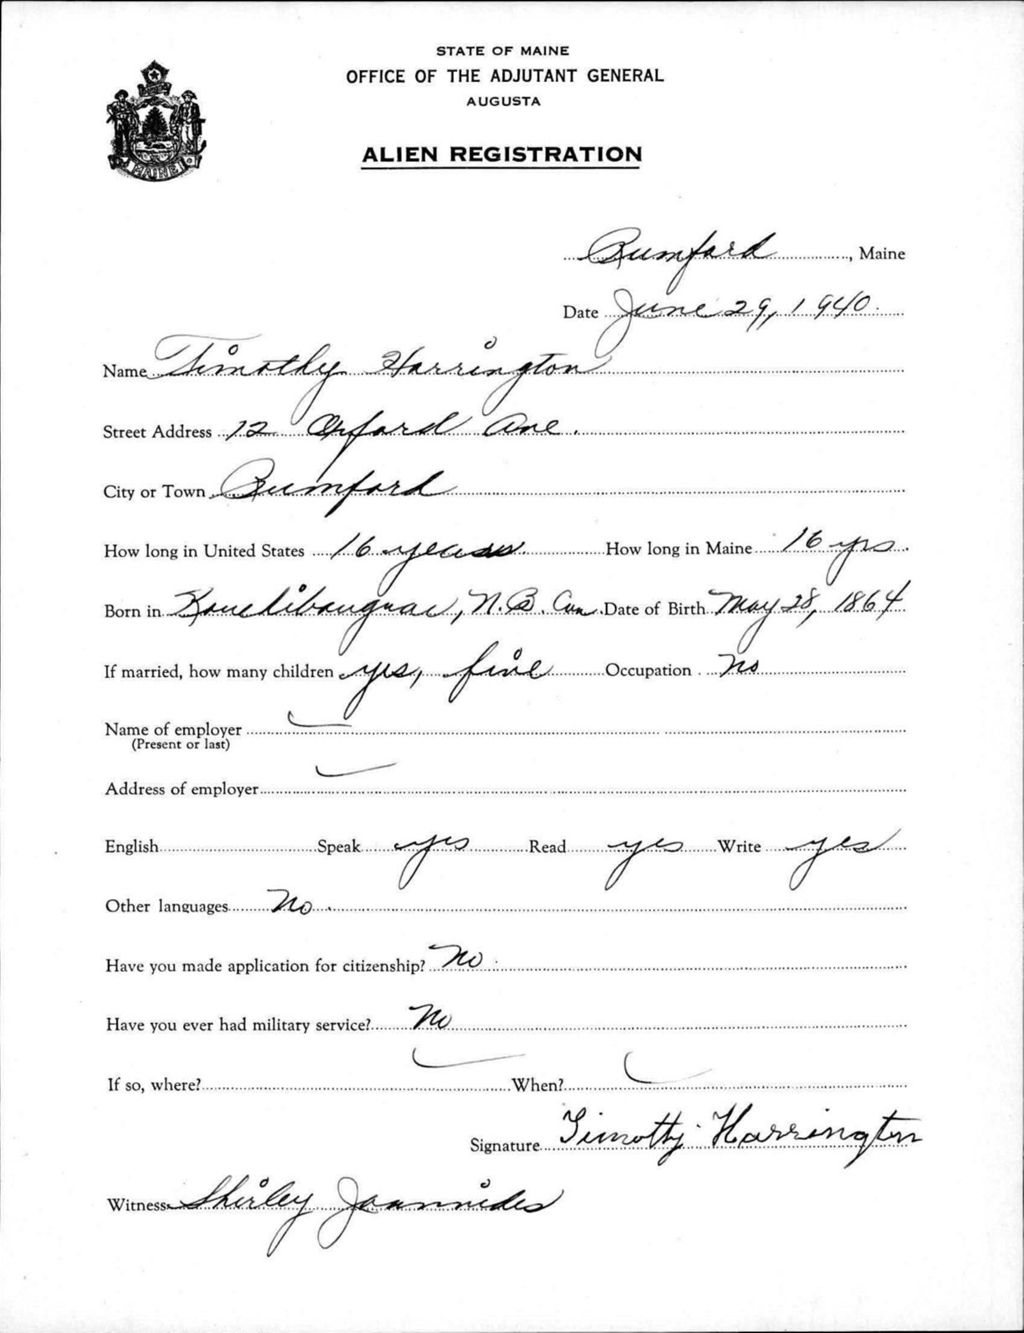 STATE OF MAINE
OFFICE OF THE ADJUTANT GENERAL
AUGUSTA
ALIEN REGISTRATION
MAINE
Rumford, Maine
Date June 29, 1940.
Name Timothy Harrington
Street Address 12 Oxford Ave.
City or Town Rumford
How long in United States 16 years. How long in Maine 16 yrs.
Born in Kouchibouguac, N.B. Can. Date of Birth May 28, 1864
If married, how many children yes, five Occupation no
Name of employer
(Present or last)
Address of employer
English Speak yes Read yes Write yes
Other languages No.
Have you made application for citizenship? No.
Have you ever had military service? No
If so, where? When?
Signature Timothy Harrington
Witness Shirley Joannides